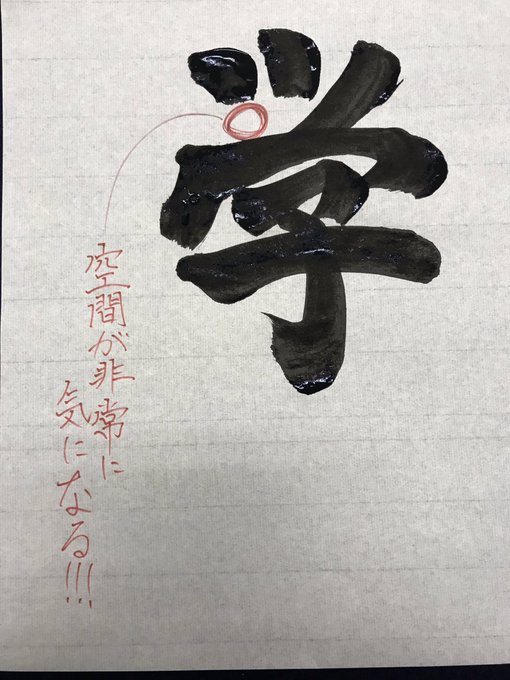 学
空間が非常に
気になる!!!